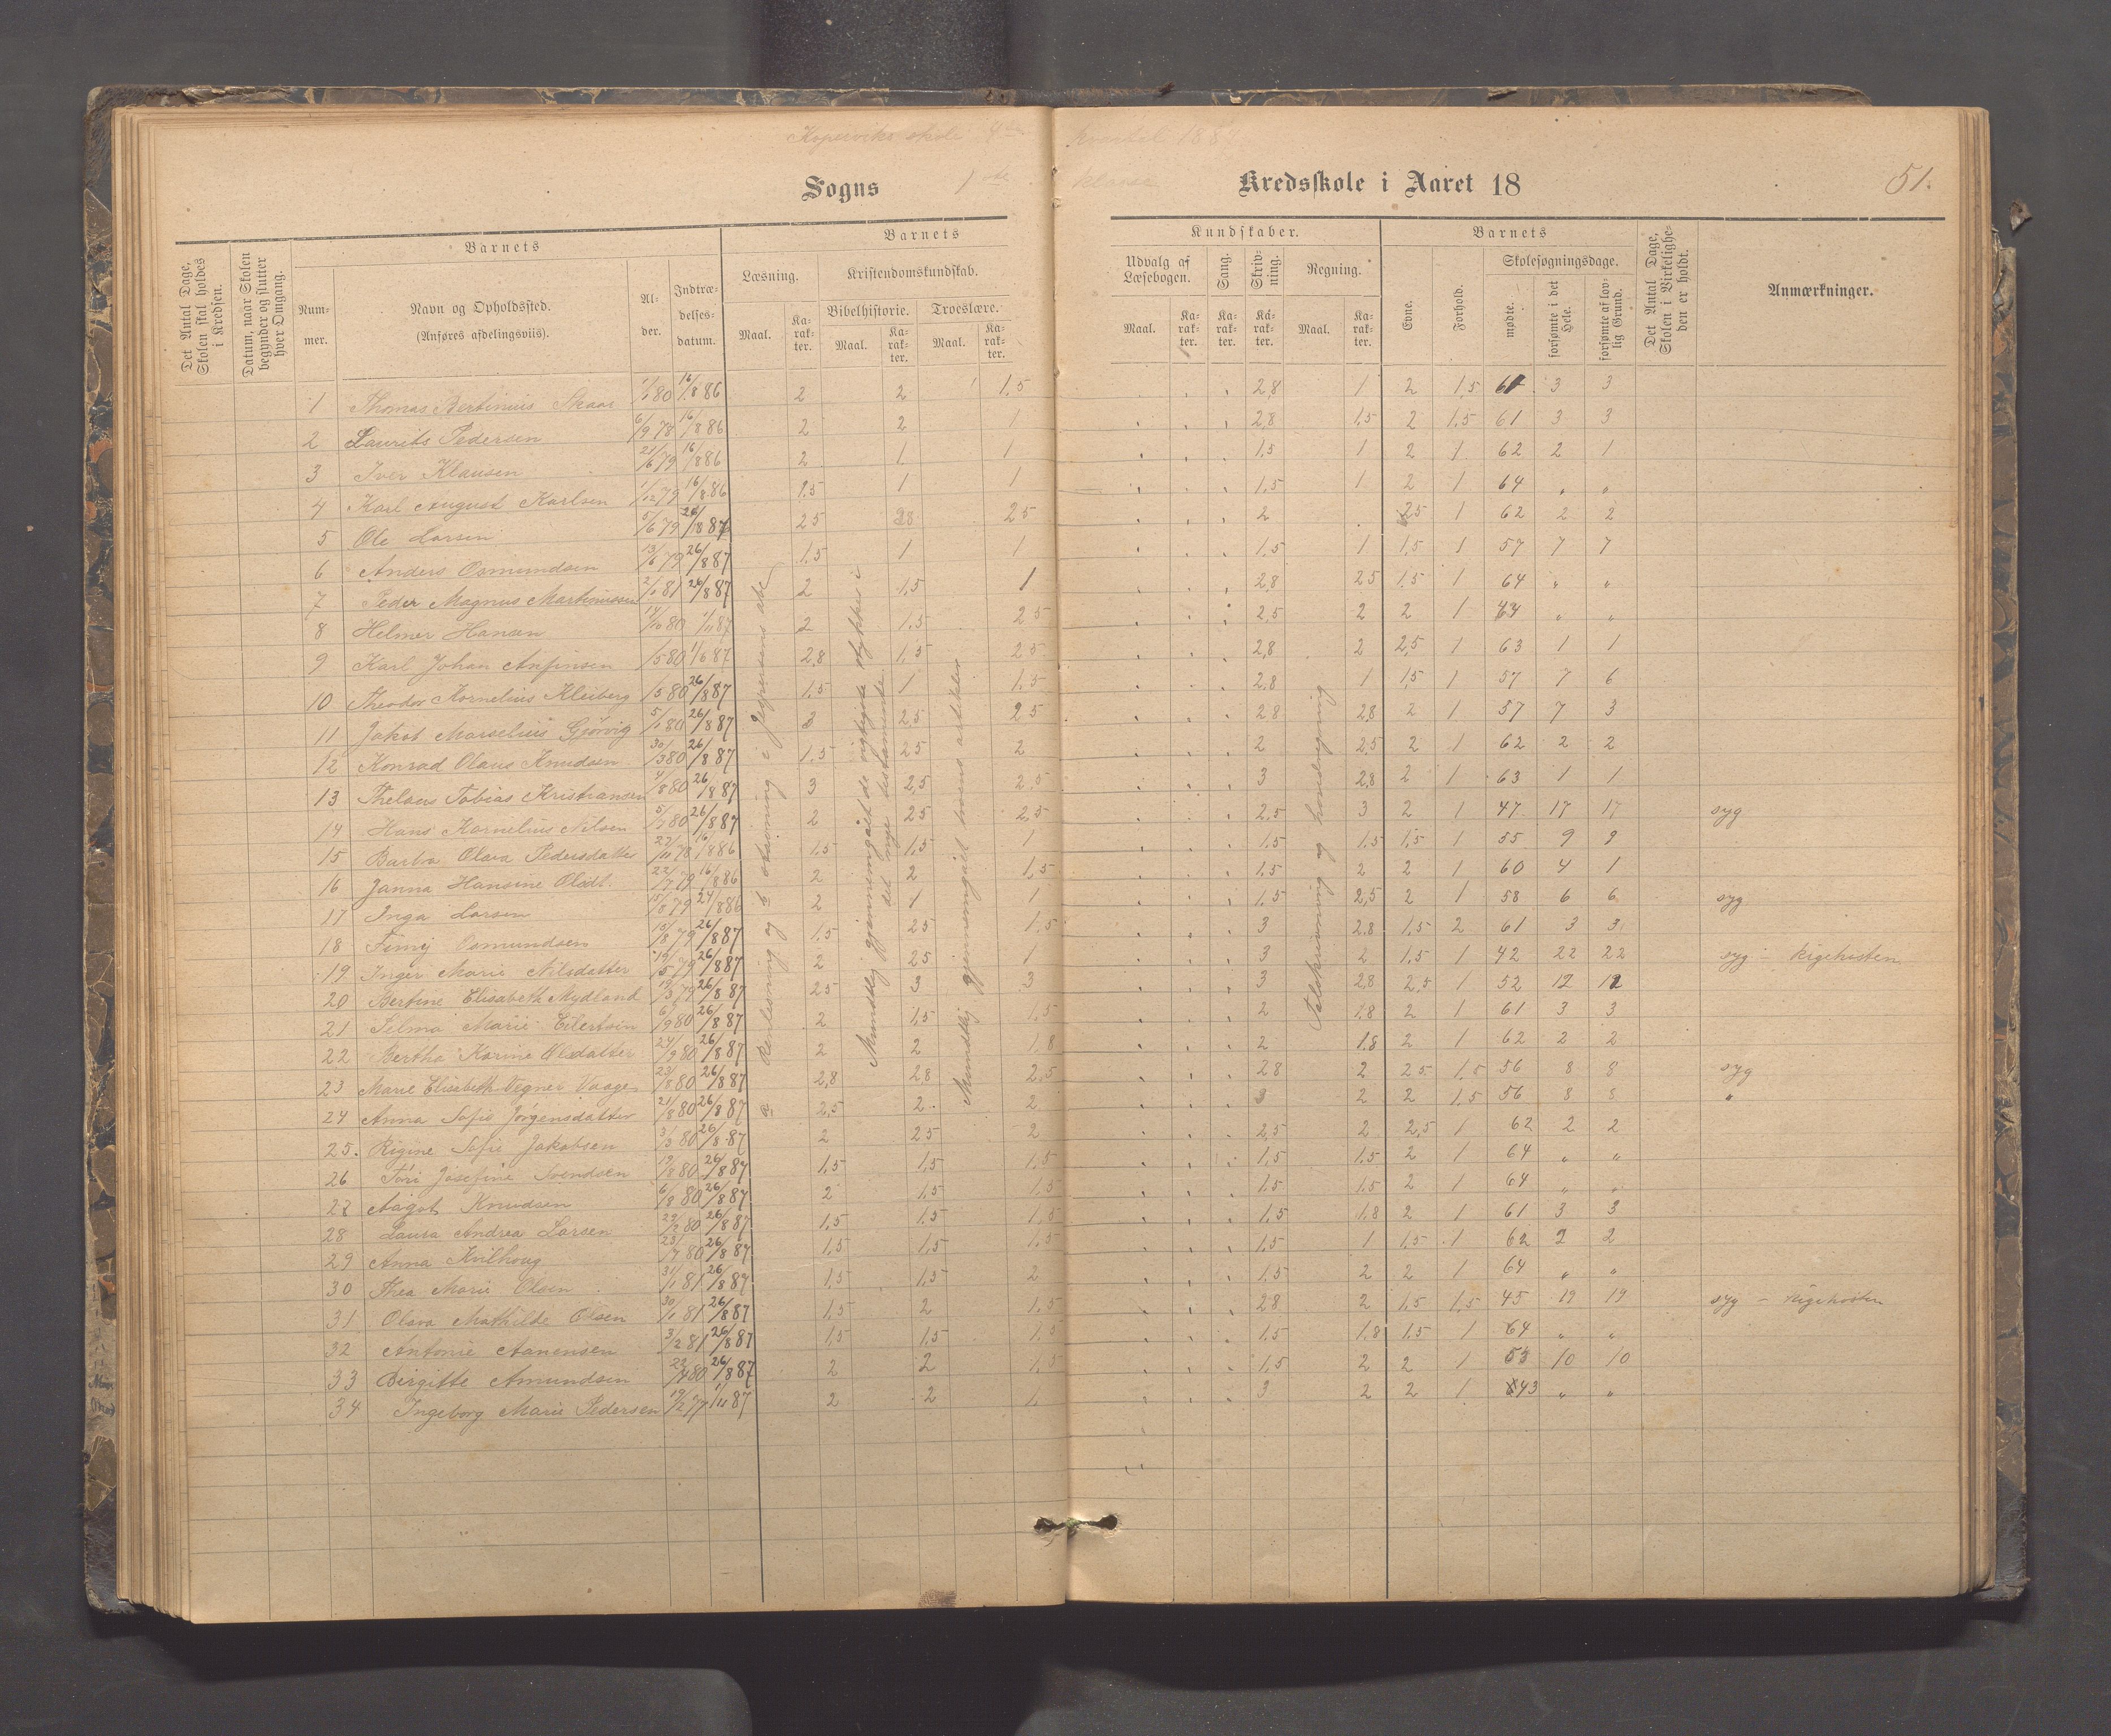 Koperviks skole 4de Kvartal 188
1ste Klasse
Sogns Kredsskole i Aaret 18 51.
Det Antal Dage, Skolen skal holdes i Kredsen.
Datum, naar Skolen begynder og slutter hver Omgang.
Barnets
Nummer.
Navn og Opholdssted.
(Anføres afdelingsviis).
Alder.
Indtrædelsesdatum.
Barnets Kundskaber.
Læsning.
Maal.
Karakter.
Kristendomskundskab.
Bibelhistorie.
Maal.
Karakter.
Troeslære.
Maal.
Karakter.
Udvalg af Læsebogen.
Maal.
Karakter.
Sang.
Karakter.
Skrivning.
Karakter.
Regning.
Maal.
Karakter.
Barnets
Evne.
Forhold.
Skolesøgningsdage.
mødte.
forsømte i det Hele.
forsømte af lovlig Grund.
Det Antal Dage, Skolen i Virkeligheden er holdt.
Anmærkninger.
1 Thomas Bertinius Skaar 1/1 80 16/8 86 2 2 1,5 2,8 1 2 1,5 61 3 3
2 Laurits Pedersen 6/9 78 16/8 86 2 2 1 2,8 1,5 2 1,5 61 3 3
3 Iver Klausen 21/6 79 16/8 86 2 1 1 1,5 1 2 1 62 2 1
4 Karl August Karlsen 1/12 79 16/8 86 1,5 1 1 1,5 1 2 1 64 " "
5 Ole Larsen 5/6 79 26/8 87 25 28 25 2 25 1 62 2 2
6 Anders Osmundsen 13/6 79 26/8 87 1,5 1 1 1,5 1 1,5 1 57 7 7
7 Peder Magnus Martinussen 2/1 81 26/8 87 2 1,5 1 2,8 25 1,5 1 64 " "
8 Helmer Hansen 14/10 80 1/11 87 2 1,5 25 2,5 2 2 1 44 " "
9 Karl Johan Anfinsen /5 80 1/6 87 2,8 1,5 25 2,8 2 2,5 1 63 1 1
10 Theodor Kornelius Kleiberg /5 80 26/8 87 1,5 1 1,5 2,8 1 1,5 1 57 7 6
11 Jakob Marselius Gjørvig 5/1 80 26/8 87 3 2,5 25 28 2,8 2 1 57 7 3
12 Konrad Olaus Knudsen 30/3 80 26/8 87 1,5 25 2 2 2,5 2 1 62 2 2
13 Tobias Kristiansen 4/8 80 26/8 87 3 2,5 2,5 3 2,8 2 1 63 1 1
14 Hans Kornelius Nilsen 5/7 80 26/8 87 2 25 2,5 2,5 3 2 1 47 17 17 syg
15 Barbra Olava Pedersdatter 22/11 78 16/8 86 1,5 1,5 1 1,5 1,5 1,5 1 55 9 9
16 Janna Hansine Olsdt. 22/7 79 16/8 86 2 2 1,5 1,5 2 2 1 60 4 1
17 Inga Larsen 15/8 79 24/8 86 2 1 1 1,5 2,5 2 1 58 6 6 syg
18 Osmundsen 15/8 79 26/8 87 1,5 25 1,5 3 2,8 1,5 2 61 3 3
19 Inger Marie Nilsdatter 19/5 79 26/8 87 2 25 1 3 2 1,5 1 42 22 22 syg - kigehosten
20 Bertine Elisabeth Mydland 19/3 79 26/8 87 25 3 3 3 2,8 2,5 1 52 12 12
21 Selma Marie Eilertsen 6/9 80 26/8 87 2 1,5 1,5 2 1,8 2 1 61 3 3
22 Bertha Karine Olsdatter 24/9 80 26/8 87 2 2 1,8 2 1,8 2 1 62 2 2
23 Marie Elisabeth Vegner Vaage 23/8 80 26/8 87 2,8 2,8 2,5 28 2 25 1,5 56 8 8 syg
24 Anna Sofie Jørgensdatter 21/8 80 26/8 87 2,5 2 2 3 2 2 1,5 56 8 8 "
25. Rigine Sofie Jakobsen 3/3 80 26/8 87 2 25 2 2,5 2 2,5 1 62 2 2
26 Tóri Josefine Svendsen 19/8 80 26/8 87 1,5 1,5 1,5 1,5 1,5 2 1 64 " "
27 Aagot Knudsen 6/8 80 26/8 87 2 1,5 1,5 1,5 1,5 2 1 64 " "
28 Laura Andrea Larsen 29/2 80 26/8 87 1,5 1,5 1,5 1,5 1,8 2 1 61 3 3
29 Anna Kvilhoug 23/7 80 26/8 87 1,5 1,5 1,5 1,5 1 1,5 1 62 2 2
30 Thea Marie Olsen 31/1 81 26/8 87 1,5 1,5 2 1,5 2 2 1 64 " "
31 Olava Mathilde Olsen 30/1 81 26/8 87 1,5 2 1,5 28 2 1,5 1,5 45 19 19 syg - kigehosten
32 Antonie Aanensen 3/2 81 26/8 87 1,5 1,5 1,5 1,5 1,8 1,5 1 64 " "
33 Birgitte Amundsen 22/4 80 26/8 87 2 2 1,5 1,5 2 2 1 53 10 10
34 Ingeborg Marie Pedersen 19/2 77 1/11 87 2 2 1 3 2 2 1 43 " "
Renlesning og staving i Jegersens abc
Mundtlig gjennemgaaet de vigtigste stykker i det nye testamente
Mundtlig gjennemgaaet troens artikler
Talskrivning og hovedregning